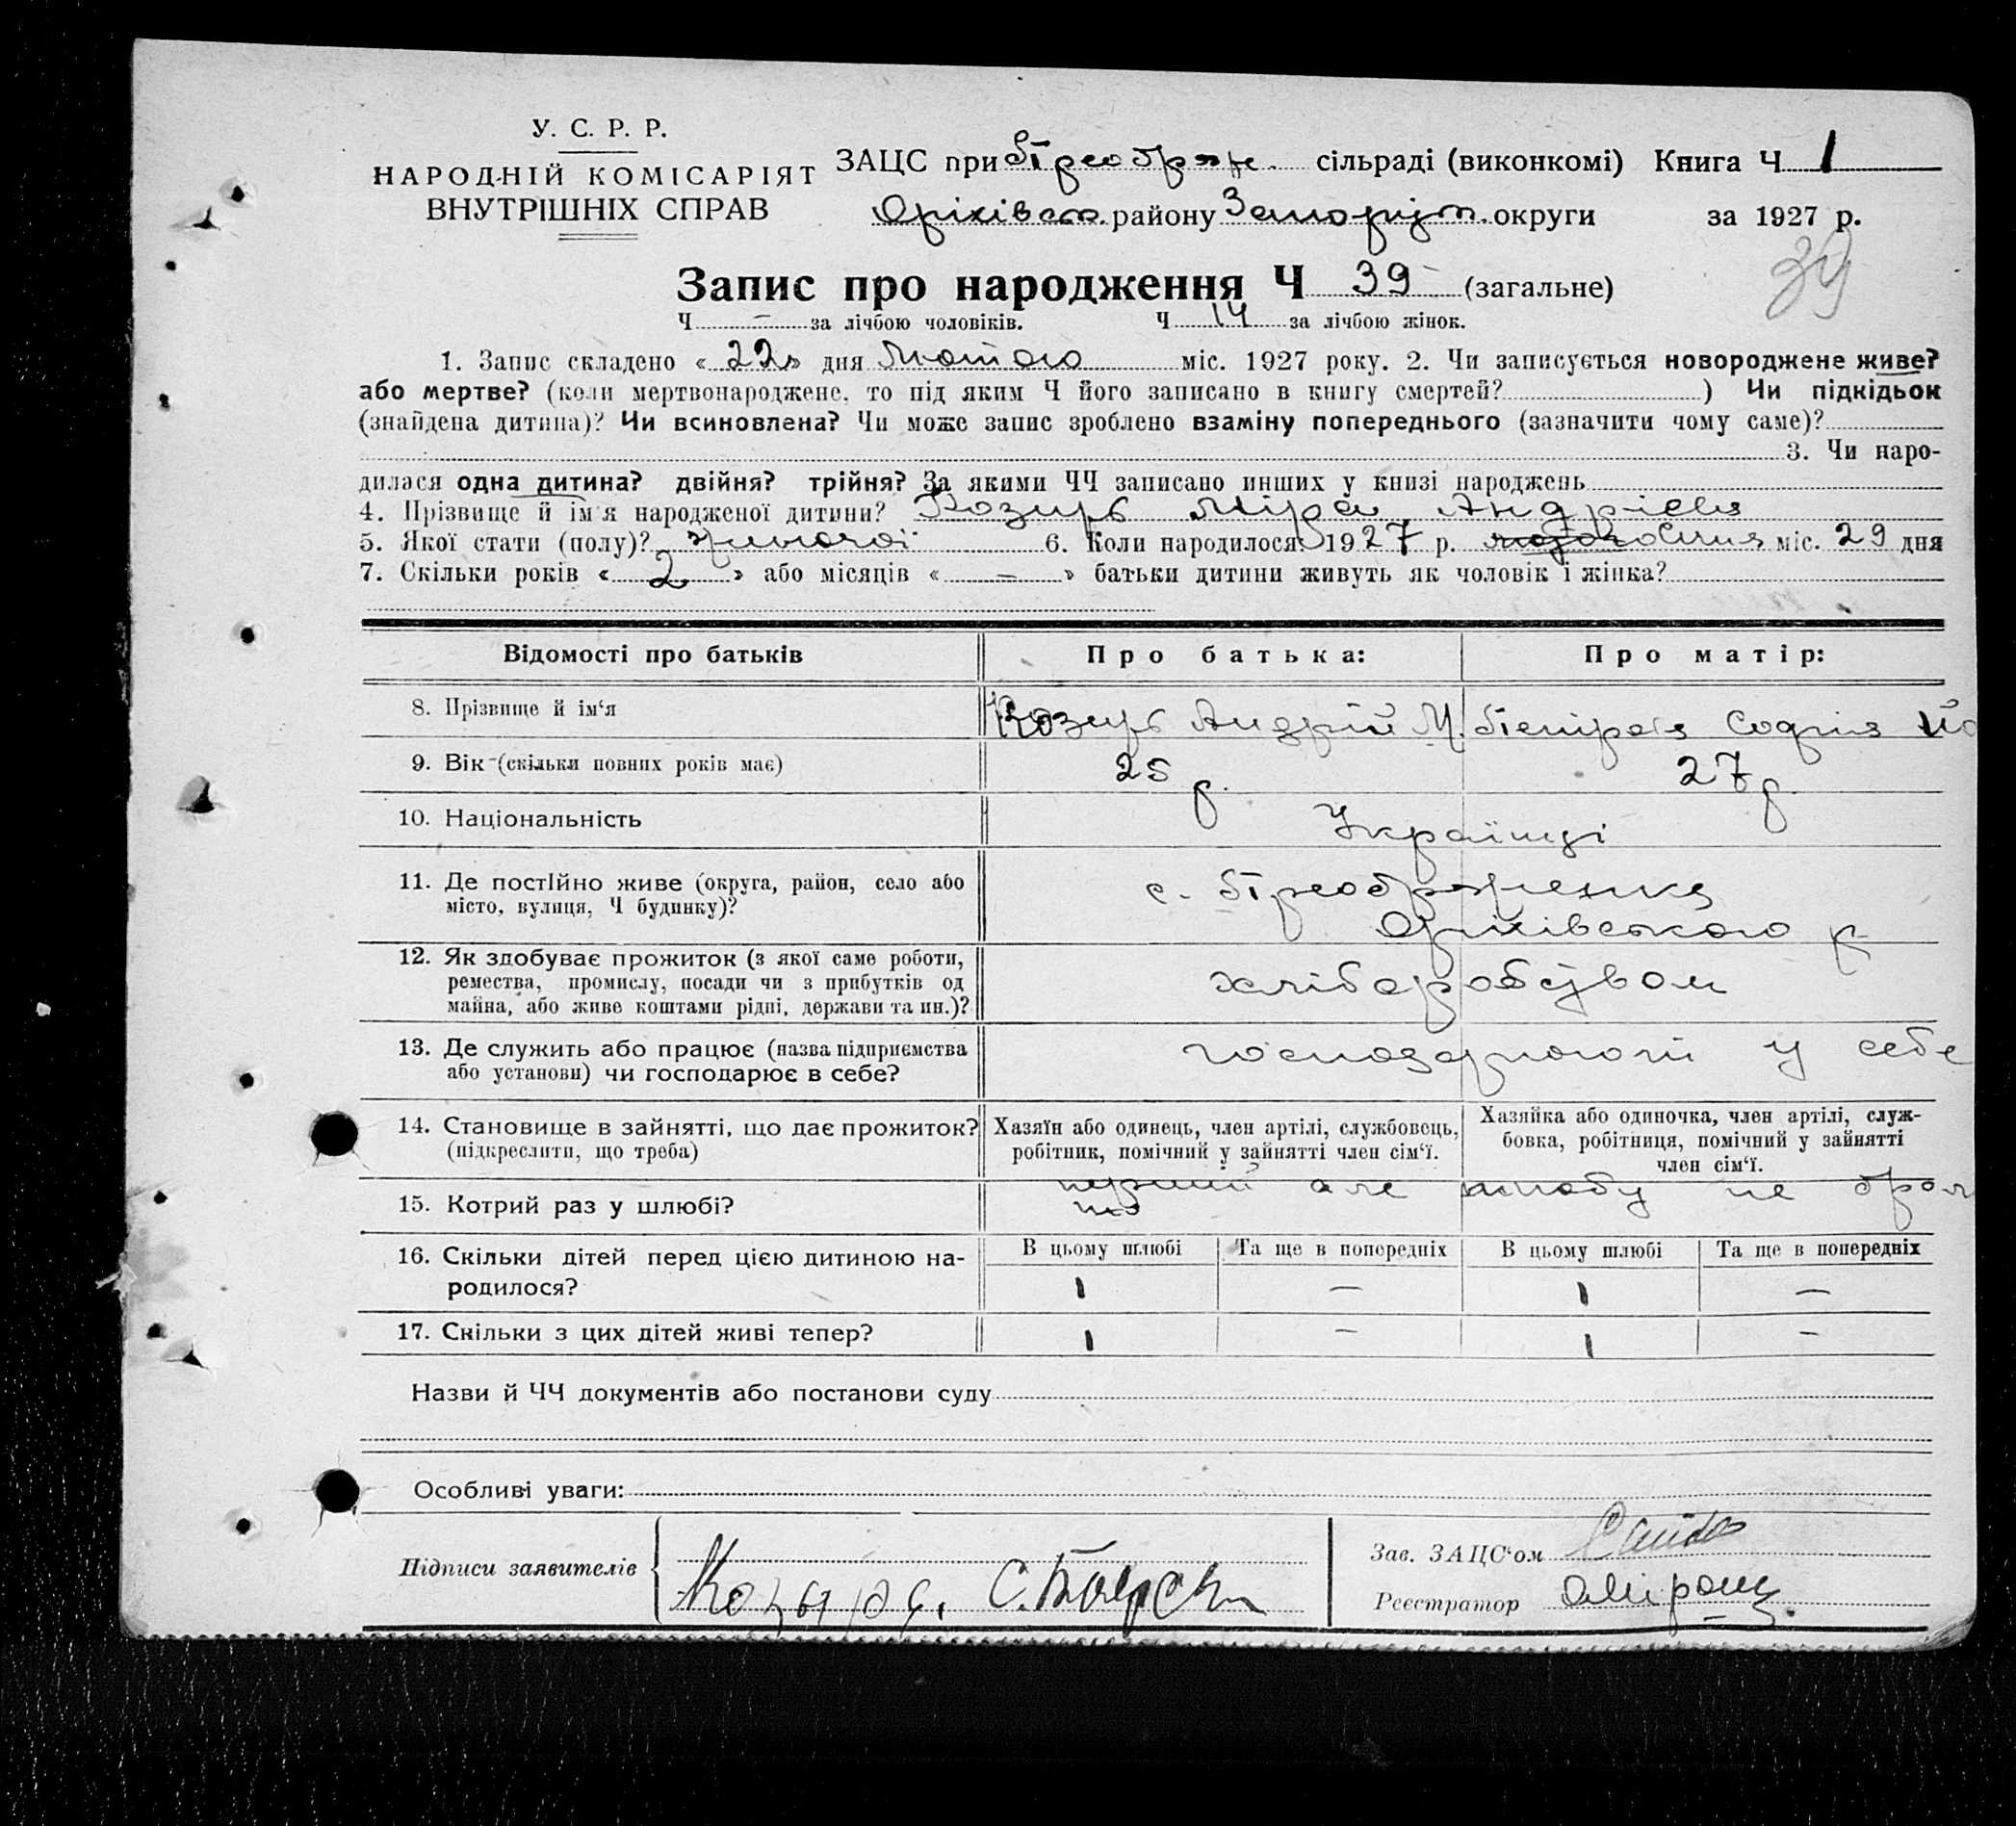 У. С. Р. Р.
НАРОДНІЙ КОМІСАРІЯТ
ВНУТРІШНІХ СПРАВ
ЗАЦС при Преображ. сільраді (виконкомі) Книга Ч 1
Оріхівськ. району Запоріз. округи за 1927 р.
39
Запис про народження Ч 39 (загальне)
Ч – за лічбою чоловіків. Ч 14 за лічбою жінок.
1. Запис складено «22» дня Лютого міс. 1927 року. 2. Чи записується новороджене живе?
або мертве? (коли мертвонароджене, то під яким Ч його записано в книгу смертей? ) Чи підкідьок
(знайдена дитина)? Чи всиновлена? Чи може запис зроблено взаміну попереднього (зазначити чому саме)?
3. Чи наро-
дилася одна дитина? двійня? трійня? За якими ЧЧ записано инших у книзі народжень
4. Прізвище й ім'я народженої дитини? Козирь Міра Андрієвя
5. Якої стати (полу)? жіночої 6. Коли народилося 1927 р. Січня міс. 29 дня
7. Скільки років «2» або місяців «–» батьки дитини живуть як чоловік і жінка?
Відомості про батьків Про батька: Про матір:
8. Прізвище й ім'я Козирь Андрій М. Софія
9. Вік (скільки повних років має) 25 р. 27 р.
10. Національність Українці
11. Де постійно живе (округа, район, село або
місто, вулиця, Ч будинку)? с. Преображенка
Оріхівського р
12. Як здобуває прожиток (з якої саме роботи,
ремества, промислу, посади чи з прибутків од
майна, або живе коштами рідні, держави та ин.)? хліборобством
13. Де служить або працює (назва підприємства
або установи) чи господарює в себе? господарюють у себе
14. Становище в зайнятті, що дає прожиток?
(підкреслити, що треба)
Хазяїн або одинець, член артілі, службовець,
робітник, помічний у зайнятті член сім'ї.
Хазяйка або одиночка, член артілі, служ-
бовка, робітниця, помічний у зайнятті
член сім'ї.
15. Котрий раз у шлюбі? перший але шлюбу не брал
16. Скільки дітей перед цією дитиною на-
родилося?
В цьому шлюбі Та ще в попередніх В цьому шлюбі Та ще в попередніх
1 – 1 –
17. Скільки з цих дітей живі тепер? 1 – 1 –
Назви й ЧЧ документів або постанови суду
Особливі уваги:
Підписи заявителів
Зав. ЗАЦС'ом
Реєстратор